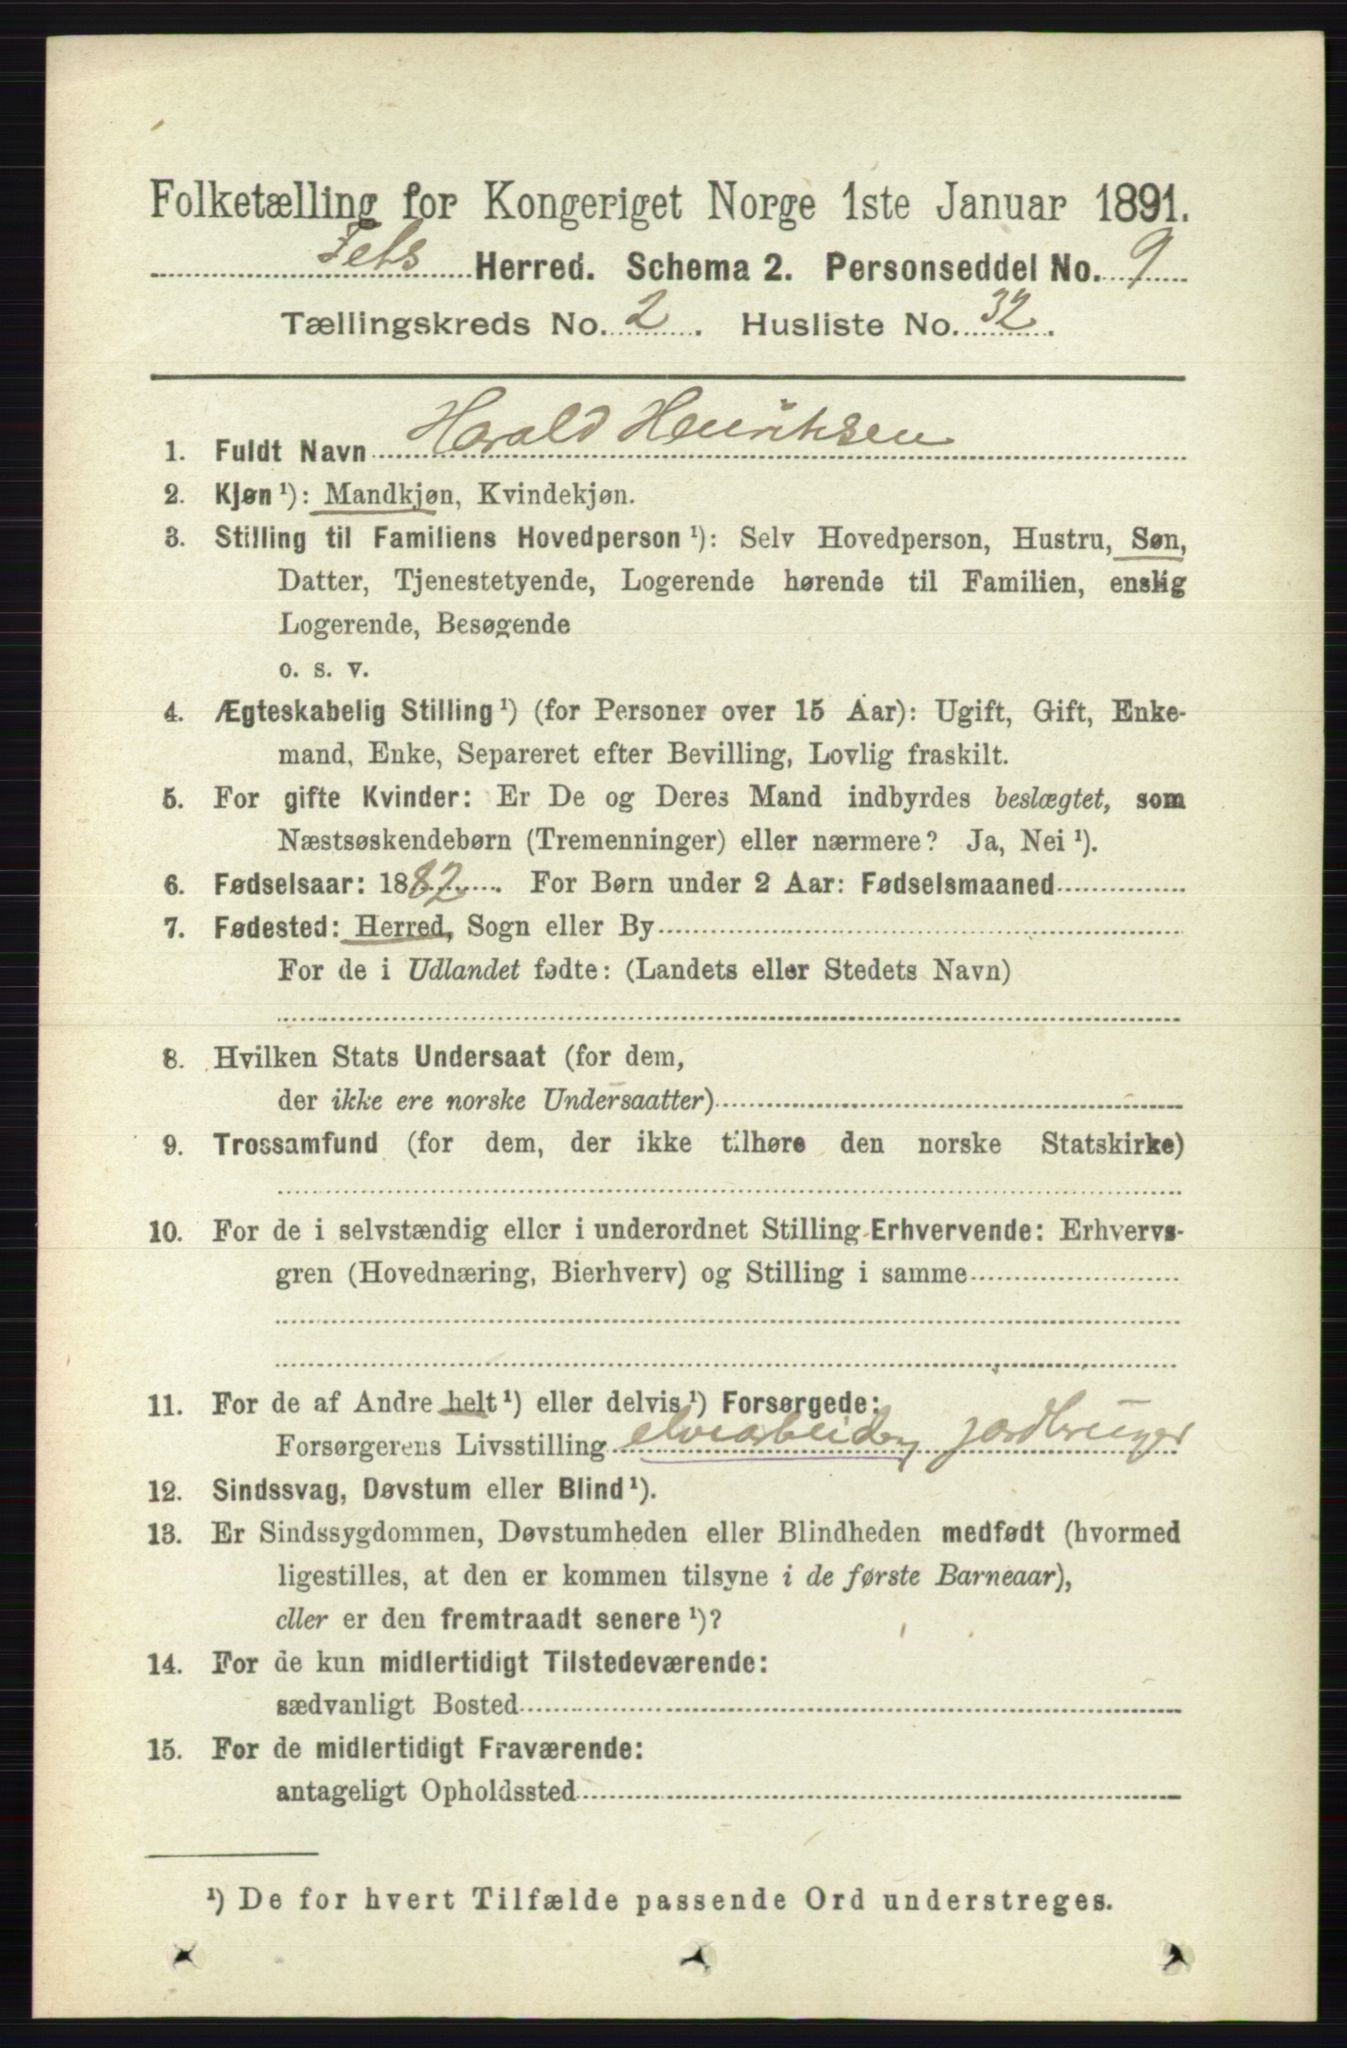 Folketælling for Kongeriget Norge 1ste Januar 1891.
Fets Herred. Schema 2. Personseddel No. 9
Tællingskreds No. 2. Husliste No. 32.
1. Fuldt Navn Harald Henriksen
2. Kjøn ¹): Mandkjøn, Kvindekjøn.
3. Stilling til Familiens Hovedperson ¹): Selv Hovedperson, Hustru, Søn,
Datter, Tjenestetyende, Logerende hørende til Familien, enslig
Logerende, Besøgende
o. s. v.
4. Ægteskabelig Stilling ¹) (for Personer over 15 Aar): Ugift, Gift, Enke-
mand, Enke, Separeret efter Bevilling, Lovlig fraskilt.
5. For gifte Kvinder: Er De og Deres Mand indbyrdes beslægtet, som
Næstsøskendebørn (Tremenninger) eller nærmere? Ja, Nei ¹).
6. Fødselsaar: 1882. For Børn under 2 Aar: Fødselsmaaned
7. Fødested: Herred, Sogn eller By
For de i Udlandet fødte: (Landets eller Stedets Navn)
8. Hvilken Stats Undersaat (for dem,
der ikke ere norske Undersaatter)
9. Trossamfund (for dem, der ikke tilhøre den norske Statskirke)
10. For de i selvstændig eller i underordnet Stilling Erhvervende: Erhvervs-
gren (Hovednæring, Bierhverv) og Stilling i samme
11. For de af Andre helt ¹) eller delvis ¹) Forsørgede:
Forsørgerens Livsstilling elvearbeider, jordbruger
12. Sindssvag, Døvstum eller Blind ¹).
13. Er Sindssygdommen, Døvstumheden eller Blindheden medfødt (hvormed
ligestilles, at den er kommen tilsyne i de første Barneaar),
eller er den fremtraadt senere ¹)?
14. For de kun midlertidigt Tilstedeværende:
sædvanligt Bosted
15. For de midlertidigt Fraværende:
antageligt Opholdssted
¹) De for hvert Tilfælde passende Ord understreges.